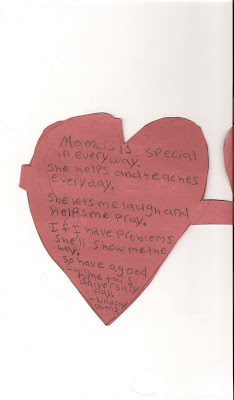 Mom is special
in every way.
She helps and teaches
everyday.
She lets me laugh and
helps me pray.
If I have problems
She'll show me the
way.
So have a good
time this
aniversary
day.
-Lindsay